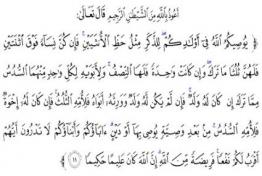 أَعُوذُ بِاللَّهِ مِنَ الشَّيْطَانِ الرَّجِيمِ قَالَ تَعَالَى:
﴿ يُوصِيكُمُ اللَّهُ فِي أَوْلَادِكُمْ لِلذَّكَرِ مِثْلُ حَظِّ الْأُنثَيَيْنِ فَإِن كُنَّ نِسَاءً فَوْقَ اثْنَتَيْنِ
فَلَهُنَّ ثُلُثَا مَا تَرَكَ وَإِن كَانَتْ وَاحِدَةً فَلَهَا النِّصْفُ وَلِأَبَوَيْهِ لِكُلِّ وَاحِدٍ مِّنْهُمَا السُّدُسُ
مِمَّا تَرَكَ إِن كَانَ لَهُ وَلَدٌ فَإِن لَّمْ يَكُن لَّهُ وَلَدٌ وَوَرِثَهُ أَبَوَاهُ فَلِأُمِّهِ الثُّلُثُ فَإِن كَانَ لَهُ إِخْوَةٌ
فَلِأُمِّهِ السُّدُسُ مِنْ بَعْدِ وَصِيَّةٍ يُوصِي بِهَا أَوْ دَيْنٍ آبَاؤُكُمْ وَأَبْنَاؤُكُمْ لَا تَدْرُونَ أَيُّهُمْ
أَقْرَبُ لَكُمْ نَفْعًا فَرِيضَةً مِّنَ اللَّهِ إِنَّ اللَّهَ كَانَ عَلِيمًا حَكِيمًا ١١ ﴾